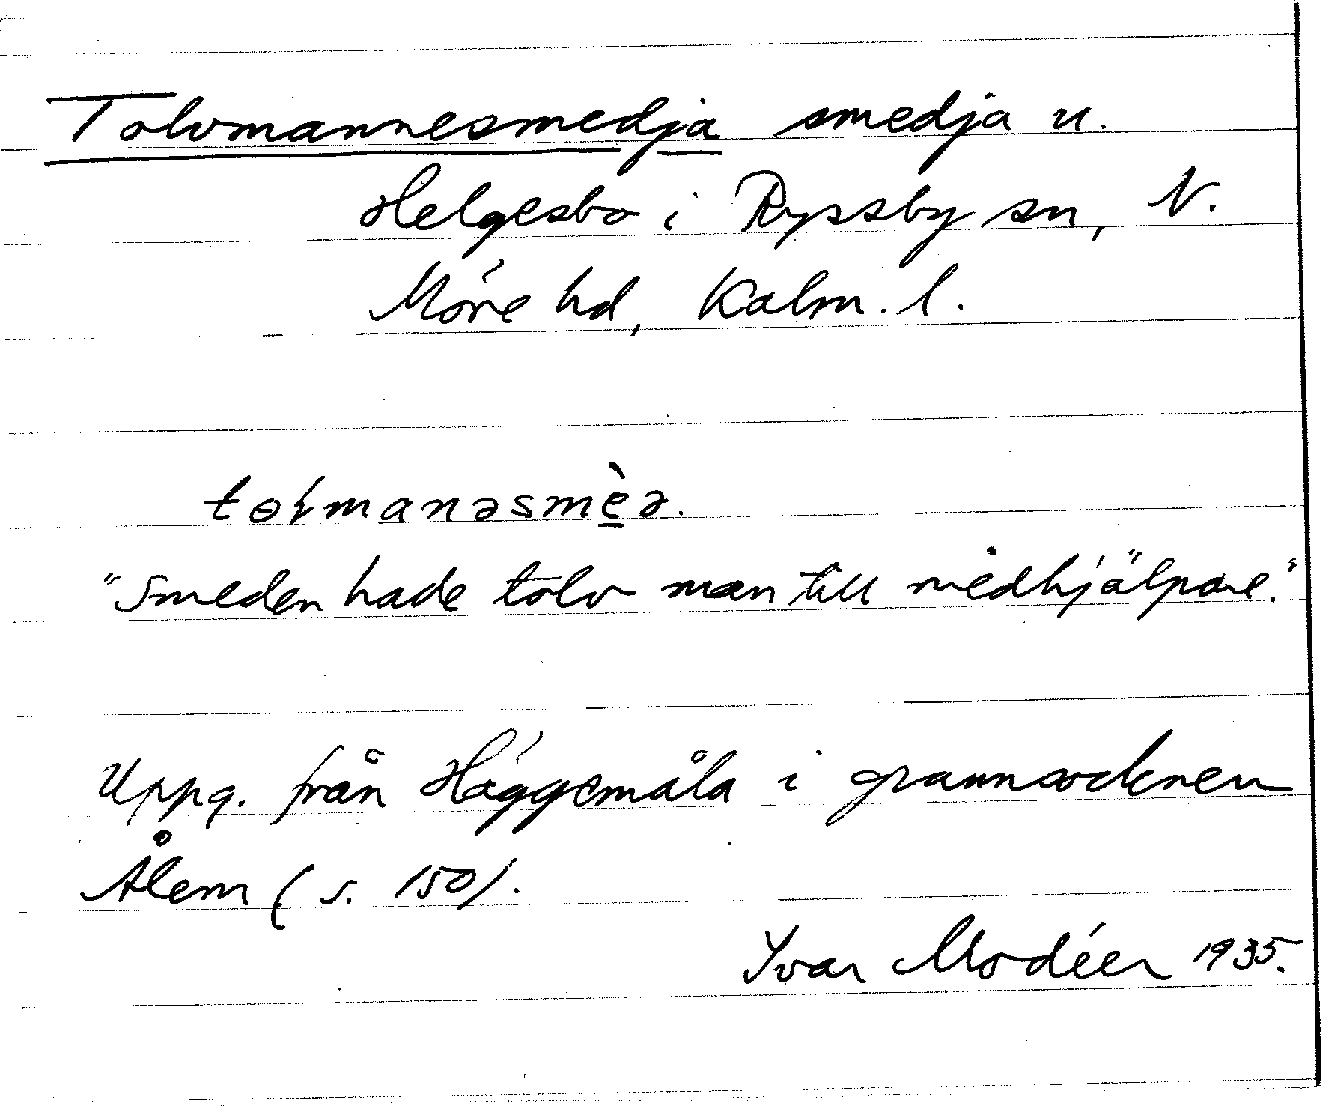 Tolvmannesmedja smedja u.
Helgesbo i Ryssby sn, N.
Möre hd, Kalm. l.
toḷmanəsmè̱ə.
"Smeden hade tolv man till medhjälpare."
Uppg. från Häggemåla i grannsocknen
Ålem (s. 150).
Yvar Modéer 1935.